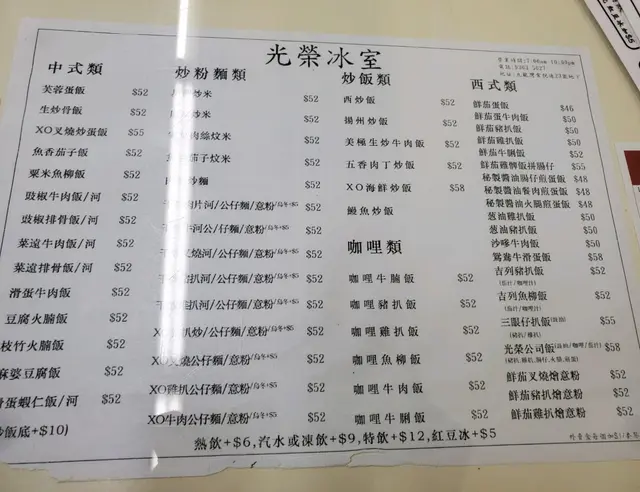 光榮冰室
中式類
芙蓉蛋飯 $52
生炒骨飯 $52
XO叉燒炒蛋飯 $55
魚香茄子飯 $52
粟米魚柳飯 $52
豉椒牛肉飯/河 $52
豉椒排骨飯/河 $52
菜遠牛肉飯/河 $52
菜遠排骨飯/河 $52
滑蛋牛肉飯 $52
豆腐火腩飯 $52
枝竹火腩飯 $52
麻婆豆腐飯 $52
滑蛋蝦仁飯/河 $52
炒飯底+$10)
炒粉麵類
炒米 $52
炒米 $52
肉絲炆米 $52
茄子炆米 $52
炒麵 $52
肉片河/公仔麵/意粉/烏冬+$5 $52
河公/公仔麵/意粉/烏冬+$5 $52
叉燒河/公仔麵/意粉/烏冬+$5 $52
扒河/公仔麵/意粉/烏冬+$5 $52
扒河/公仔麵/意粉/烏冬+$5 $52
XO 扒炒/公仔麵/意粉/烏冬+$5 $52
XO叉燒公仔麵/意粉/烏冬+$5 $52
XO雞扒公仔麵/意粉/烏冬+$5 $52
XO牛肉公仔麵/意粉/烏冬+$5 $52
炒飯類
西炒飯 $52
揚州炒飯 $52
美極生炒牛肉飯 $52
五香肉丁炒飯 $52
XO海鮮炒飯 $58
鰻魚炒飯
咖哩類
咖哩牛腩飯 $52
咖哩豬扒飯 $52
咖哩雞扒飯 $52
咖哩魚柳飯 $52
咖哩牛肉飯 $52
咖哩牛脷飯 $52
西式類
鮮茄蛋飯 $46
鮮茄蛋牛肉飯 $50
鮮茄豬扒飯 $50
鮮茄雞扒飯 $50
鮮茄牛脷飯 $52
鮮茄雞髀飯拼腸仔 $55
秘製醬油腸仔煎蛋飯 $48
秘製醬油餐肉煎蛋飯 $48
秘製醬油火腿煎蛋飯 $48
葱油雞扒飯 $50
葱油豬扒飯 $50
沙嗲牛肉飯 $50
鴛鴦牛滑蛋飯 $58
吉列豬扒飯 $52
(茄汁/咖哩汁)
吉列魚柳飯 $52
(茄汁/咖哩汁)
三眼仔扒飯 $55
(豬扒/雞扒)
光榮公司飯 $58
鮮茄叉燒燴意粉 $52
鮮茄豬扒燴意粉 $52
鮮茄雞扒燴意粉 $52
熱飲+$6,汽水或凍飲+$9,特飲+$12,紅豆冰+$5